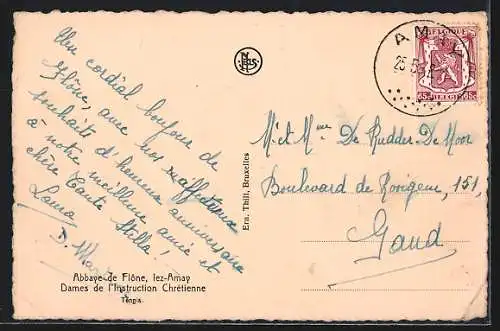 Un cordial bonjour de
Flône, avec nos affectueux
souhaits d'heureux anniversaire
à notre meilleure amie et
chère Tante Stella!
Laura
D.
Abbaye de Flône, lez-Amay
Dames de l'Instruction Chrétienne
Tennis
Ern. Thill, Bruxelles
AMAY
25
BELGIQUE
BELGIE
Mr et Mme De Rudder-De Moor
Boulevard de Rorigem, 151,
Gand